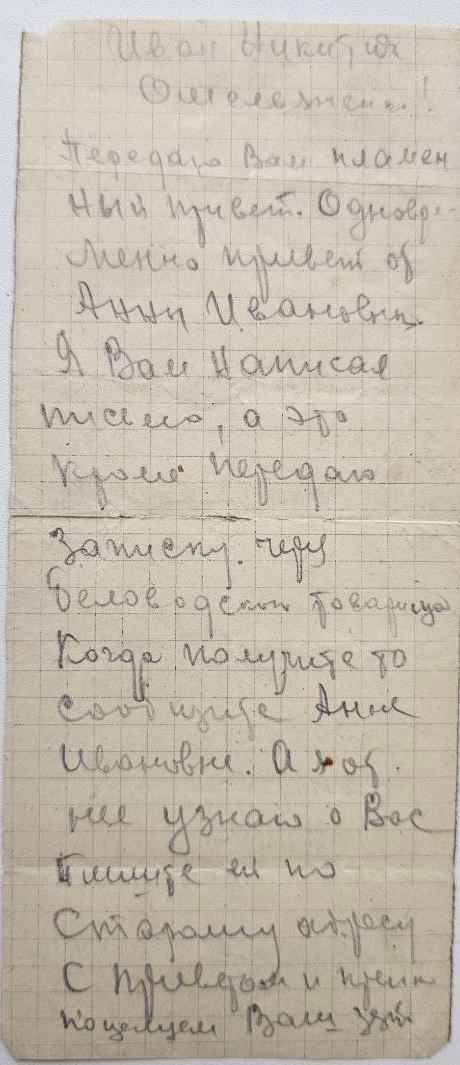 Иван Никитич
Омельяненк.!
Передаю Вам пламен
ный привет. Одновре-
менно привет от
Анны Ивановны.
Я Вам написал
письмо, а это
кроме передаю
Записку. через
Беловодском товарища
Когда получите то
сообщите Анне
Ивановне. А я от
нее узнаю о Вас
Пишите ей по
Старому адресу
С приветом и
поцелуем Ваш зять